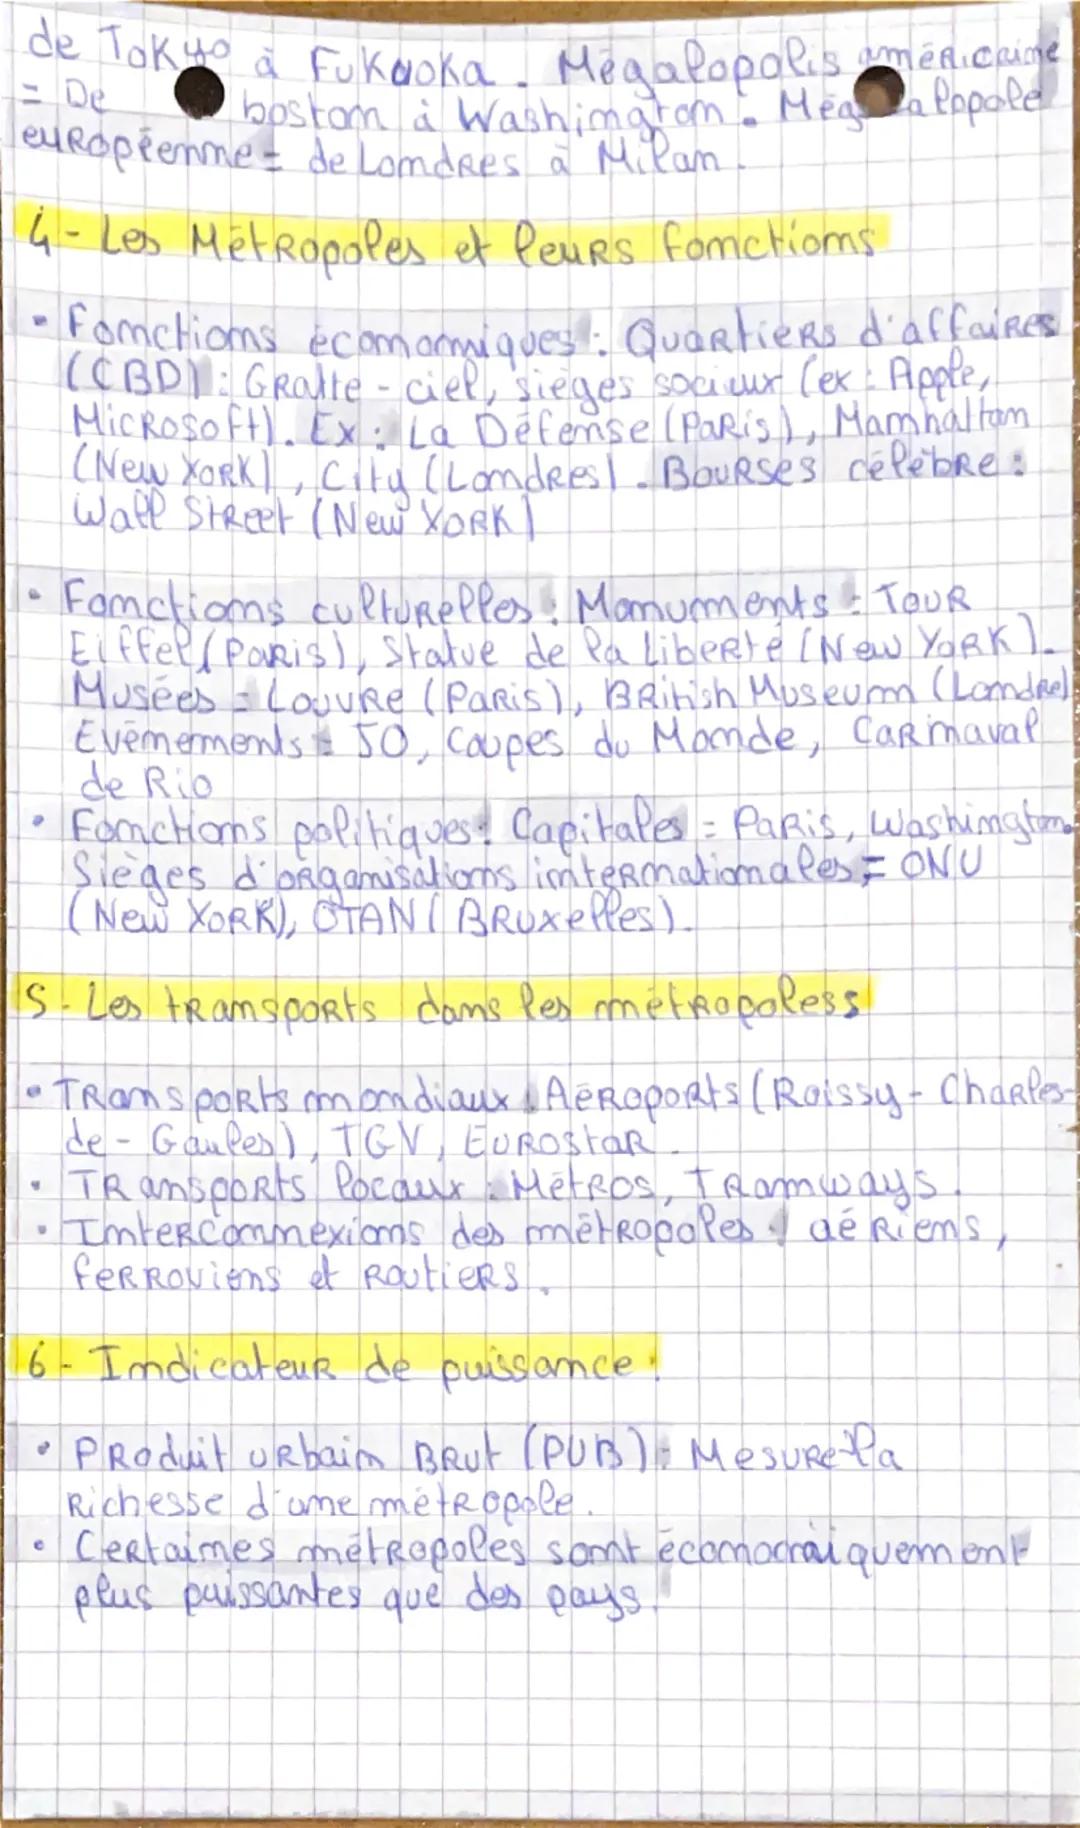 de Tokyo à Fukuoka. Mégalopolis américaine
= De boston à Washington. Mégalopole
européenne = de Londres à Milan.
4 - Les Métropoles et leurs fonctions
• Fonctions économiques : Quartiers d'affaires
(CBD) : Gratte-ciel, sièges sociaux (ex : Apple,
Microsoft). Ex : La Défense (Paris), Manhattan
(New York), City (Londres). Bourses célèbre :
Wall Street (New York)
• Fonctions culturelles : Monuments = Tour
Eiffel (Paris), Statue de la Liberté (New York).
Musées = Louvre (Paris), British Museum (Londre)
Evénements = JO, Coupes du Monde, Carnaval
de Rio
• Fonctions politiques : Capitales = Paris, Washington.
Sièges d'organisations internationales = ONU
(New York), OTAN (Bruxelles).
5 - Les transports dans les métropoless
• Transports mondiaux : Aéroports (Roissy - Charles-
de - Gaules), TGV, Eurostar.
• Transports locaux : Métros, Tramways.
• Interconnexions des métropoles : aériens,
ferroviens et routiers.
6 - Indicateur de puissance :
• Produit urbain Brut (PUB) : Mesure la
Richesse d'une métropole.
• Certaines métropoles sont économiquement
plus puissantes que des pays.